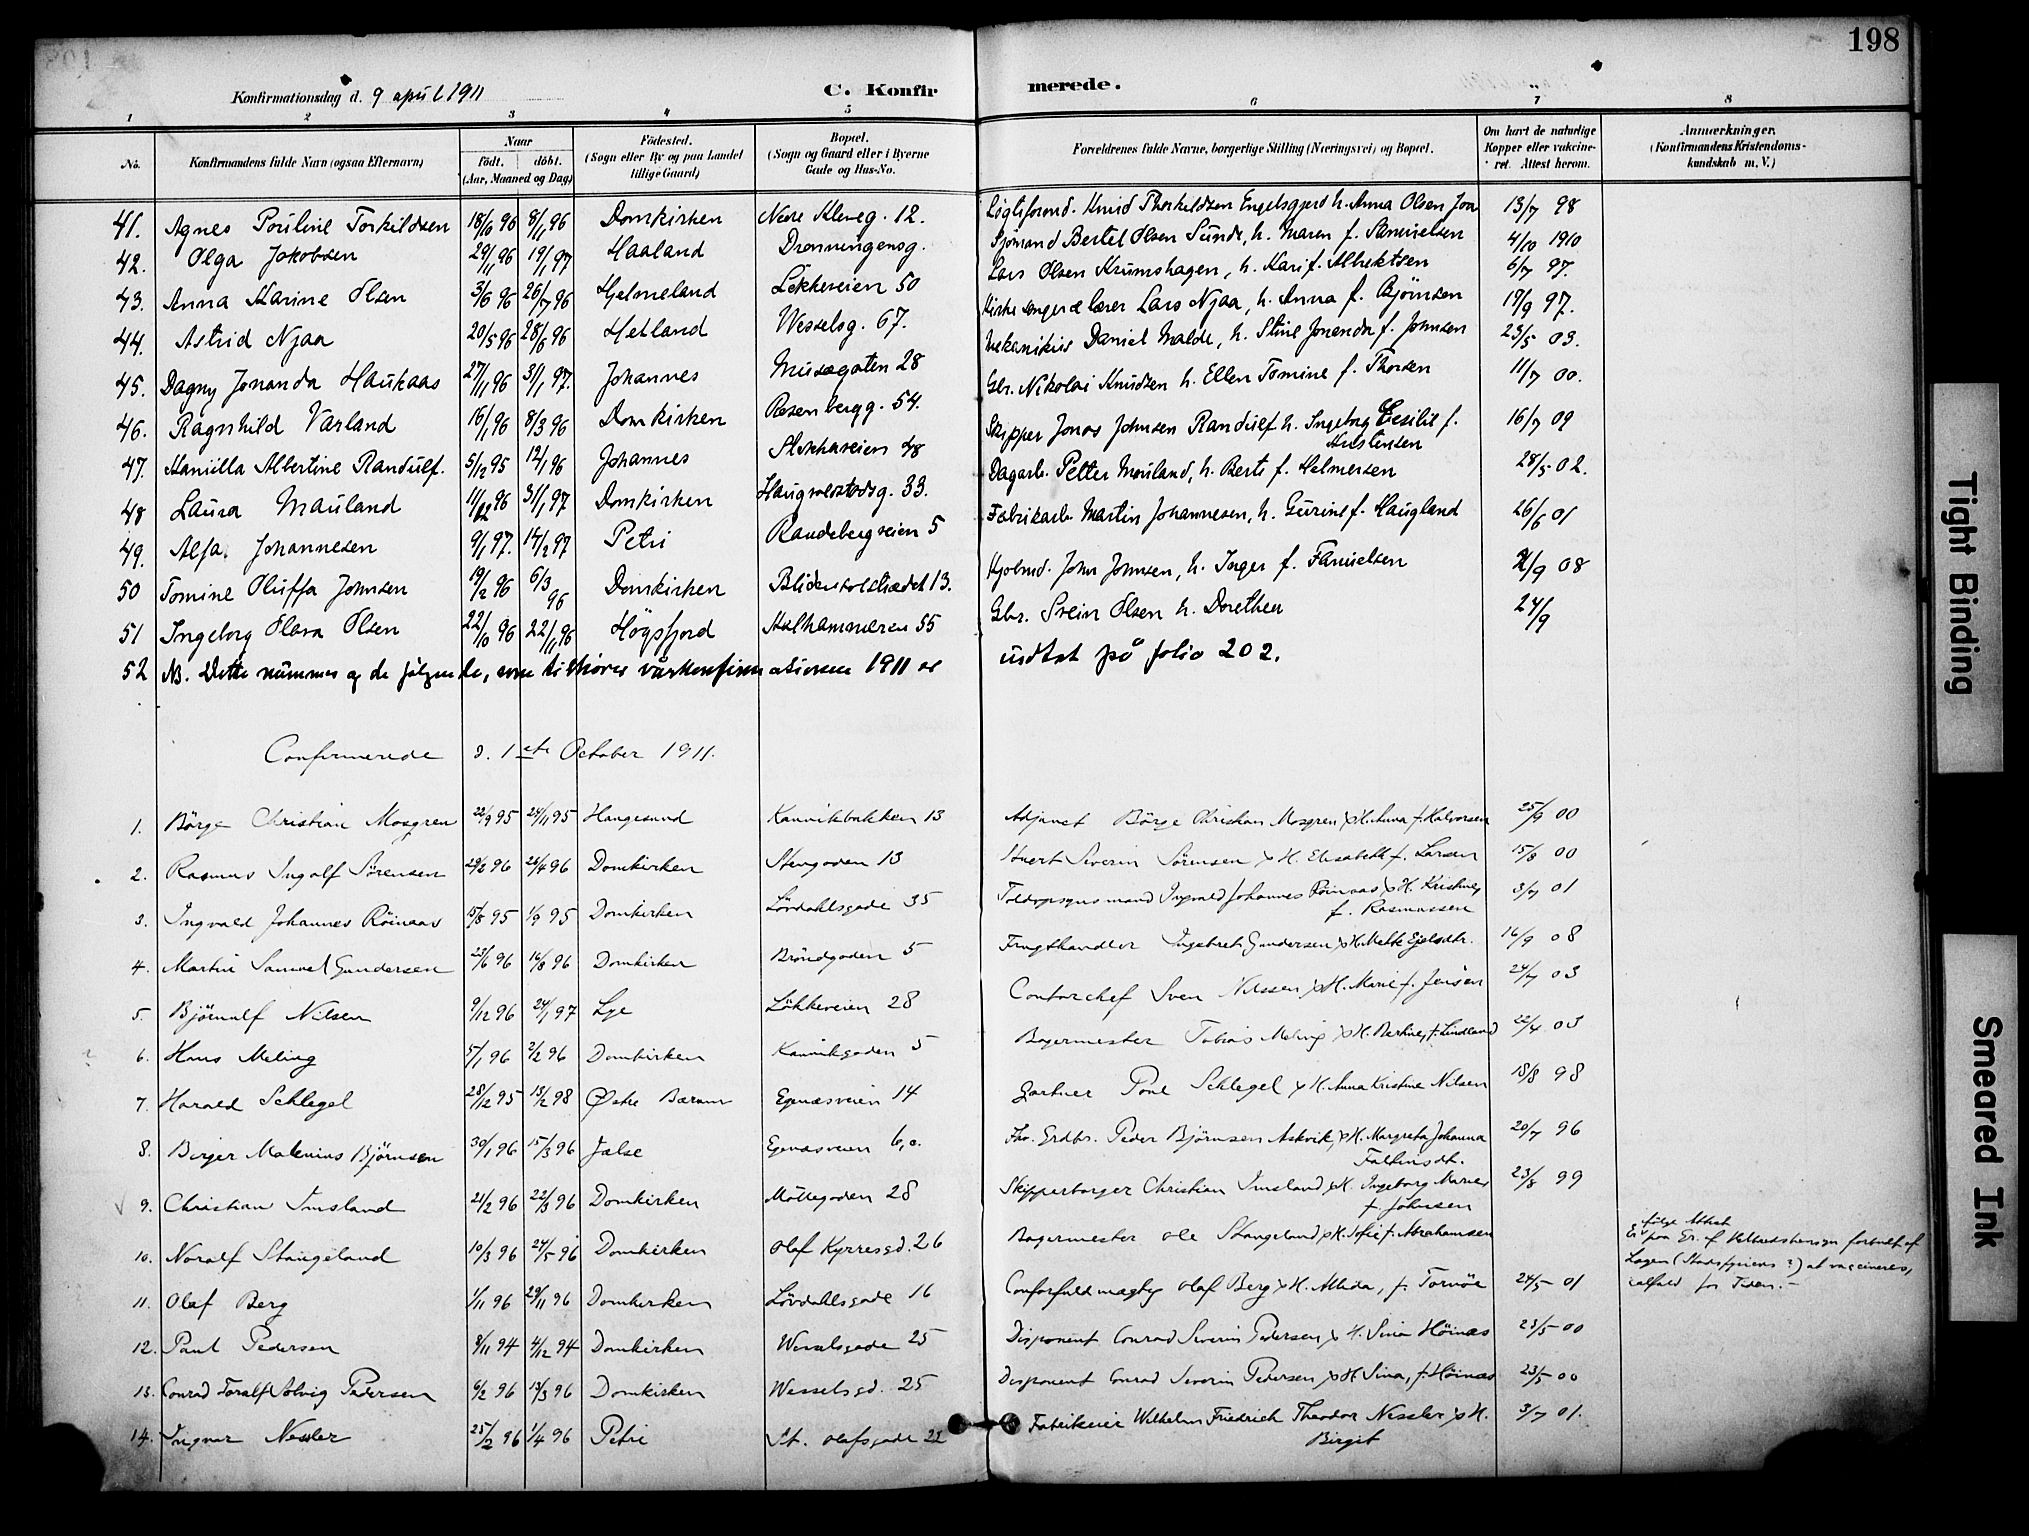 198
Konfirmationsdag d. 9 april 1911 C. Konfir merede.
1 2 3 4 5 6 7 8
No. Konfirmandens fulde Navn (ogsaa Efternavn) Naar født. døbt. (Aar, Maaned og Dag) Fødested. (Sogn eller By og paa Landet tillige Gaard) Bopæl. (Sogn og Gaard eller i Byerne Gade og Hus-No. Forældrenes fulde Navne, borgerlige Stilling (Næringsvei) og Bopæl. Om havt de naturlige Kopper eller vaccineret. Attest herom. Anmærkninger. (Konfirmandens Kristendomskundskab m. V.)
41. Agnes Pouline Torkildsen 18/10 96 8/11 96 Domkirken Nedre Kleivg. 12. Knud Thorkildsen Engelsgjerd h. Anna Olsen 13/7 98
42. Olga Jakobsen 29/11 96 19/1 97 Haaland Dronningensg. Sjømand Bertel Olsen Sunde, h. Maren f. Samuelsen 4/10 1910
43. Anna Karine Olsen 3/6 96 26/7 96 Hjelmeland Løkkeveien 50 Lars Olsen Krumshagen, h. Kari f. 6/7 97.
44. Astrid Njaa 20/5 96 28/6 96 Hetland Wesselsg. 67. Kirkesanger & lærer Lars Njaa, h. Anna f. Bjørnsen 17/9 97.
45. Dagny Jonanda Haukaas 27/11 96 31/1 97. Johannes Musægaten 28 Mekanikus Daniel Malde, h. Stine Jonanda f. Johnsen 23/5 03.
46. Ragnhild Varland 16/1 96 8/3 96 Domkirken Rosenbergg. 54. Gbr. Nikolai Knudsen h. Ellen Tomine f. Thorsen 11/7 00.
47. Kamilla Albertine Randulf. 5/12 95 12/1 96 Johannes Stokkaveien 48 Skipper Jonas Johnsen Randulf h. Ingeborg Cesilie f. Kristensen 16/7 09
48 Laura Mauland 11/12 96 31/1 97 Domkirken Haugvaldstadsg. 33. Dagarb. Petter Mauland, h. Berte f. Helmersen 28/5 02.
49. Alfa Johannesen 9/1 97. 14/2 97 Petri Randebergveien 5 Fabrikarb. Martin Johannesen, h. Gurine f. Haugland 26/6 01
50 Tomine Oluffa Johnsen 19/2 96 6/3 96 Domkirken 13. John Johnsen, h. Inger f. /9 08
51 Ingeborg Olava Olsen 22/10 96 22/11 96 Høgsfjord Kalhammeren 55 Gbr. Svein Olsen h. Dorethea 24/9
52 NB. Dette nummer og de følgende, som tilhører vårkonfirmationen 1911 er indtat på folio 202.
Confirmerede d. 1ste October 1911.
1. Børge Christian Mosgren 22/9 95 24/11 95 Haugesund Kannikbakken 13 Adjunct Børge Christian Mosgren & H. Anna f. Halvorsen 25/9 00
2. Rasmus Ingolf Sørensen 29/2 96 26/4 96 Domkirken Stengaden 13 Stuert Severin Sørensen & H. Elisabeth f. Larsen 15/8 00
3. Ingvald Johannes Røinaas 15/8 95 1/9 95 Domkirken Løvdahlsgade 35 Toldopsynsmand Ingvald Johannes Røinaas & H. Kristine, f. Rasmussen 3/7 01
4. Martin Samuel Gundersen 23/6 96 16/8 96 Domkirken Brøndgaden 5 Frugthandler Ingebret Gundersen & H. Mette 16/9 08
5. Bjørnulf Nilsen 9/12 96 24/1 97 Lye Løkkeveien 28 Contorchef Sven Nilssen & H. Marie f. Jensen 24/7 03
6. Hans Meling 5/1 96 2/2 96 Domkirken Kannikgaden 5 Bagermester Tobias Meling & H. Bertine, f. Lindland 22/4 03
7. Harald Schlegel 28/12 95 13/2 98 Østre Bærum Egenæsveien 14 Gartner Poul Schlegel & H. Anna Kristine Nilsen 18/8 98
8. Birger Malenius Bjørnsen 30/1 96 15/3 96 Jælse Egenæsveien 6,a. Fhv. Grdbr. Peder Bjørnsen Askvik, & H. Margreta Johanna Faltinsdt. 20/7 96
9. Christian Imsland 21/2 96 22/3 96 Domkirken Møllegaden 28 Skipperborger Christian Imsland & H. Ingeborg Marie, f. Johnsen 23/8 99
10. Noralf Stangeland 10/3 96 24/5 96 Domkirken Olaf Kyrresgd. 26 Bagermester Ole Stangeland & H. Sofie f. Abrahamsen
ifølge Attest
paa Gr. af Helbredshensyn forbudt af
Lægen ( ?) at vaccineres,
ialfald for Tiden. –
11. Olaf Berg 1/11 96 29/11 96 Domkirken Løvdahlsgade 16 Contorfuldmægtig Olaf Berg & H. Alida, f. Tornøe 24/5 01
12. Paul Pedersen 8/11 94 4/12 94 Domkirken Wesselsgade 25 Disponent Conrad Severin Pedersen & H. Sina Høinæs 23/5 00
13. Conrad Toralf Solvig Pedersen 6/2 96 13/3 96 Domkirken Wesselsgd. 25 Disponent Conrad Severin Pedersen & H. Sina, f. Høinæs 23/5 00
14. Ingvar Nessler 25/2 96 1/4 96 Petri St. Olafsgade 22 Fabrikeier Wilhelm Friedrich Theodor Nessler & H. Birgit 3/7 01.
Tight Binding
Smeared Ink